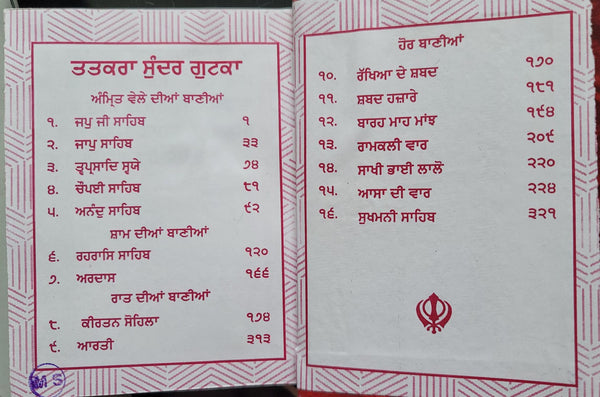 ਤਤਕਰਾ ਸੁੰਦਰ ਗੁਟਕਾ
ਅੰਮ੍ਰਿਤ ਵੇਲੇ ਦੀਆਂ ਬਾਣੀਆਂ
੧. ਜਪੁ ਜੀ ਸਾਹਿਬ ੧
੨. ਜਾਪੁ ਸਾਹਿਬ ੩੩
੩. ਤ੍ਵਪ੍ਰਸਾਦਿ ਸ੍ਵਯੇ ੭੪
੪. ਚੌਪਈ ਸਾਹਿਬ ੮੧
੫. ਅਨੰਦੁ ਸਾਹਿਬ ੯੨
ਸ਼ਾਮ ਦੀਆਂ ਬਾਣੀਆਂ
੬. ਰਹਰਾਸਿ ਸਾਹਿਬ ੧੨੦
੭. ਅਰਦਾਸ ੧੬੬
ਰਾਤ ਦੀਆਂ ਬਾਣੀਆਂ
੮. ਕੀਰਤਨ ਸੋਹਿਲਾ ੧੭੪
੯. ਆਰਤੀ ੩੧੩
MS
ਹੋਰ ਬਾਣੀਆਂ
੧੦. ਰੱਖਿਆ ਦੇ ਸ਼ਬਦ ੧੭੦
੧੧. ਸ਼ਬਦ ਹਜ਼ਾਰੇ ੧੮੧
੧੨. ਬਾਰਹ ਮਾਹ ਮਾਂਝ ੧੯੪
੧੩. ਰਾਮਕਲੀ ਵਾਰ ੨੦੯
੧੪. ਸਾਖੀ ਭਾਈ ਲਾਲੋ ੨੨੦
੧੫. ਆਸਾ ਦੀ ਵਾਰ ੨੨੪
੧੬. ਸੁਖਮਨੀ ਸਾਹਿਬ ੩੨੧